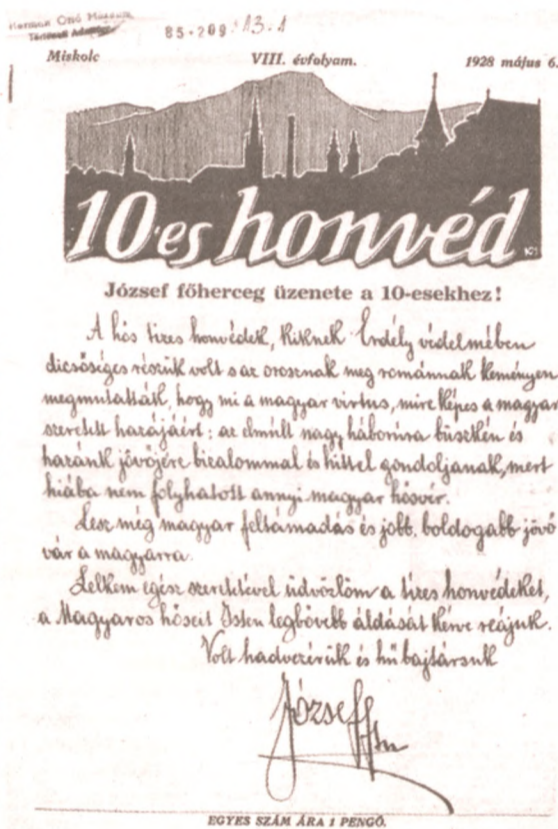 Herman Ottó Múzeum
Történeti Adattár
85-209. 13.1
Miskolc VIII. évfolyam. 1928 május 6.
10-es honvéd
József főherceg üzenete a 10-esekhez!
A hős tizes honvédek, kiknek Erdély védelmében
dicsőséges részük volt s az orosznak meg románnak keményen
megmutatták, hogy mi a magyar virtus, mire képes a magyar
szeretett hazájáért: az elmúlt nagy háborúra büszkén és
hazánk jövőjére bizalommal és hittel gondoljanak, mert
hiába nem folyhatott annyi magyar hősvér.
Lesz még magyar feltámadás és jobb, boldogabb jövő
vár a magyarra.
Lelkem egész szeretetével üdvözlöm a tizes honvédeket,
a Magyaros hőseit Isten legbővebb áldását kérve reájuk.
Volt hadvezérük és hű bajtársuk
József
EGYES SZÁM ÁRA 1 PENGŐ.